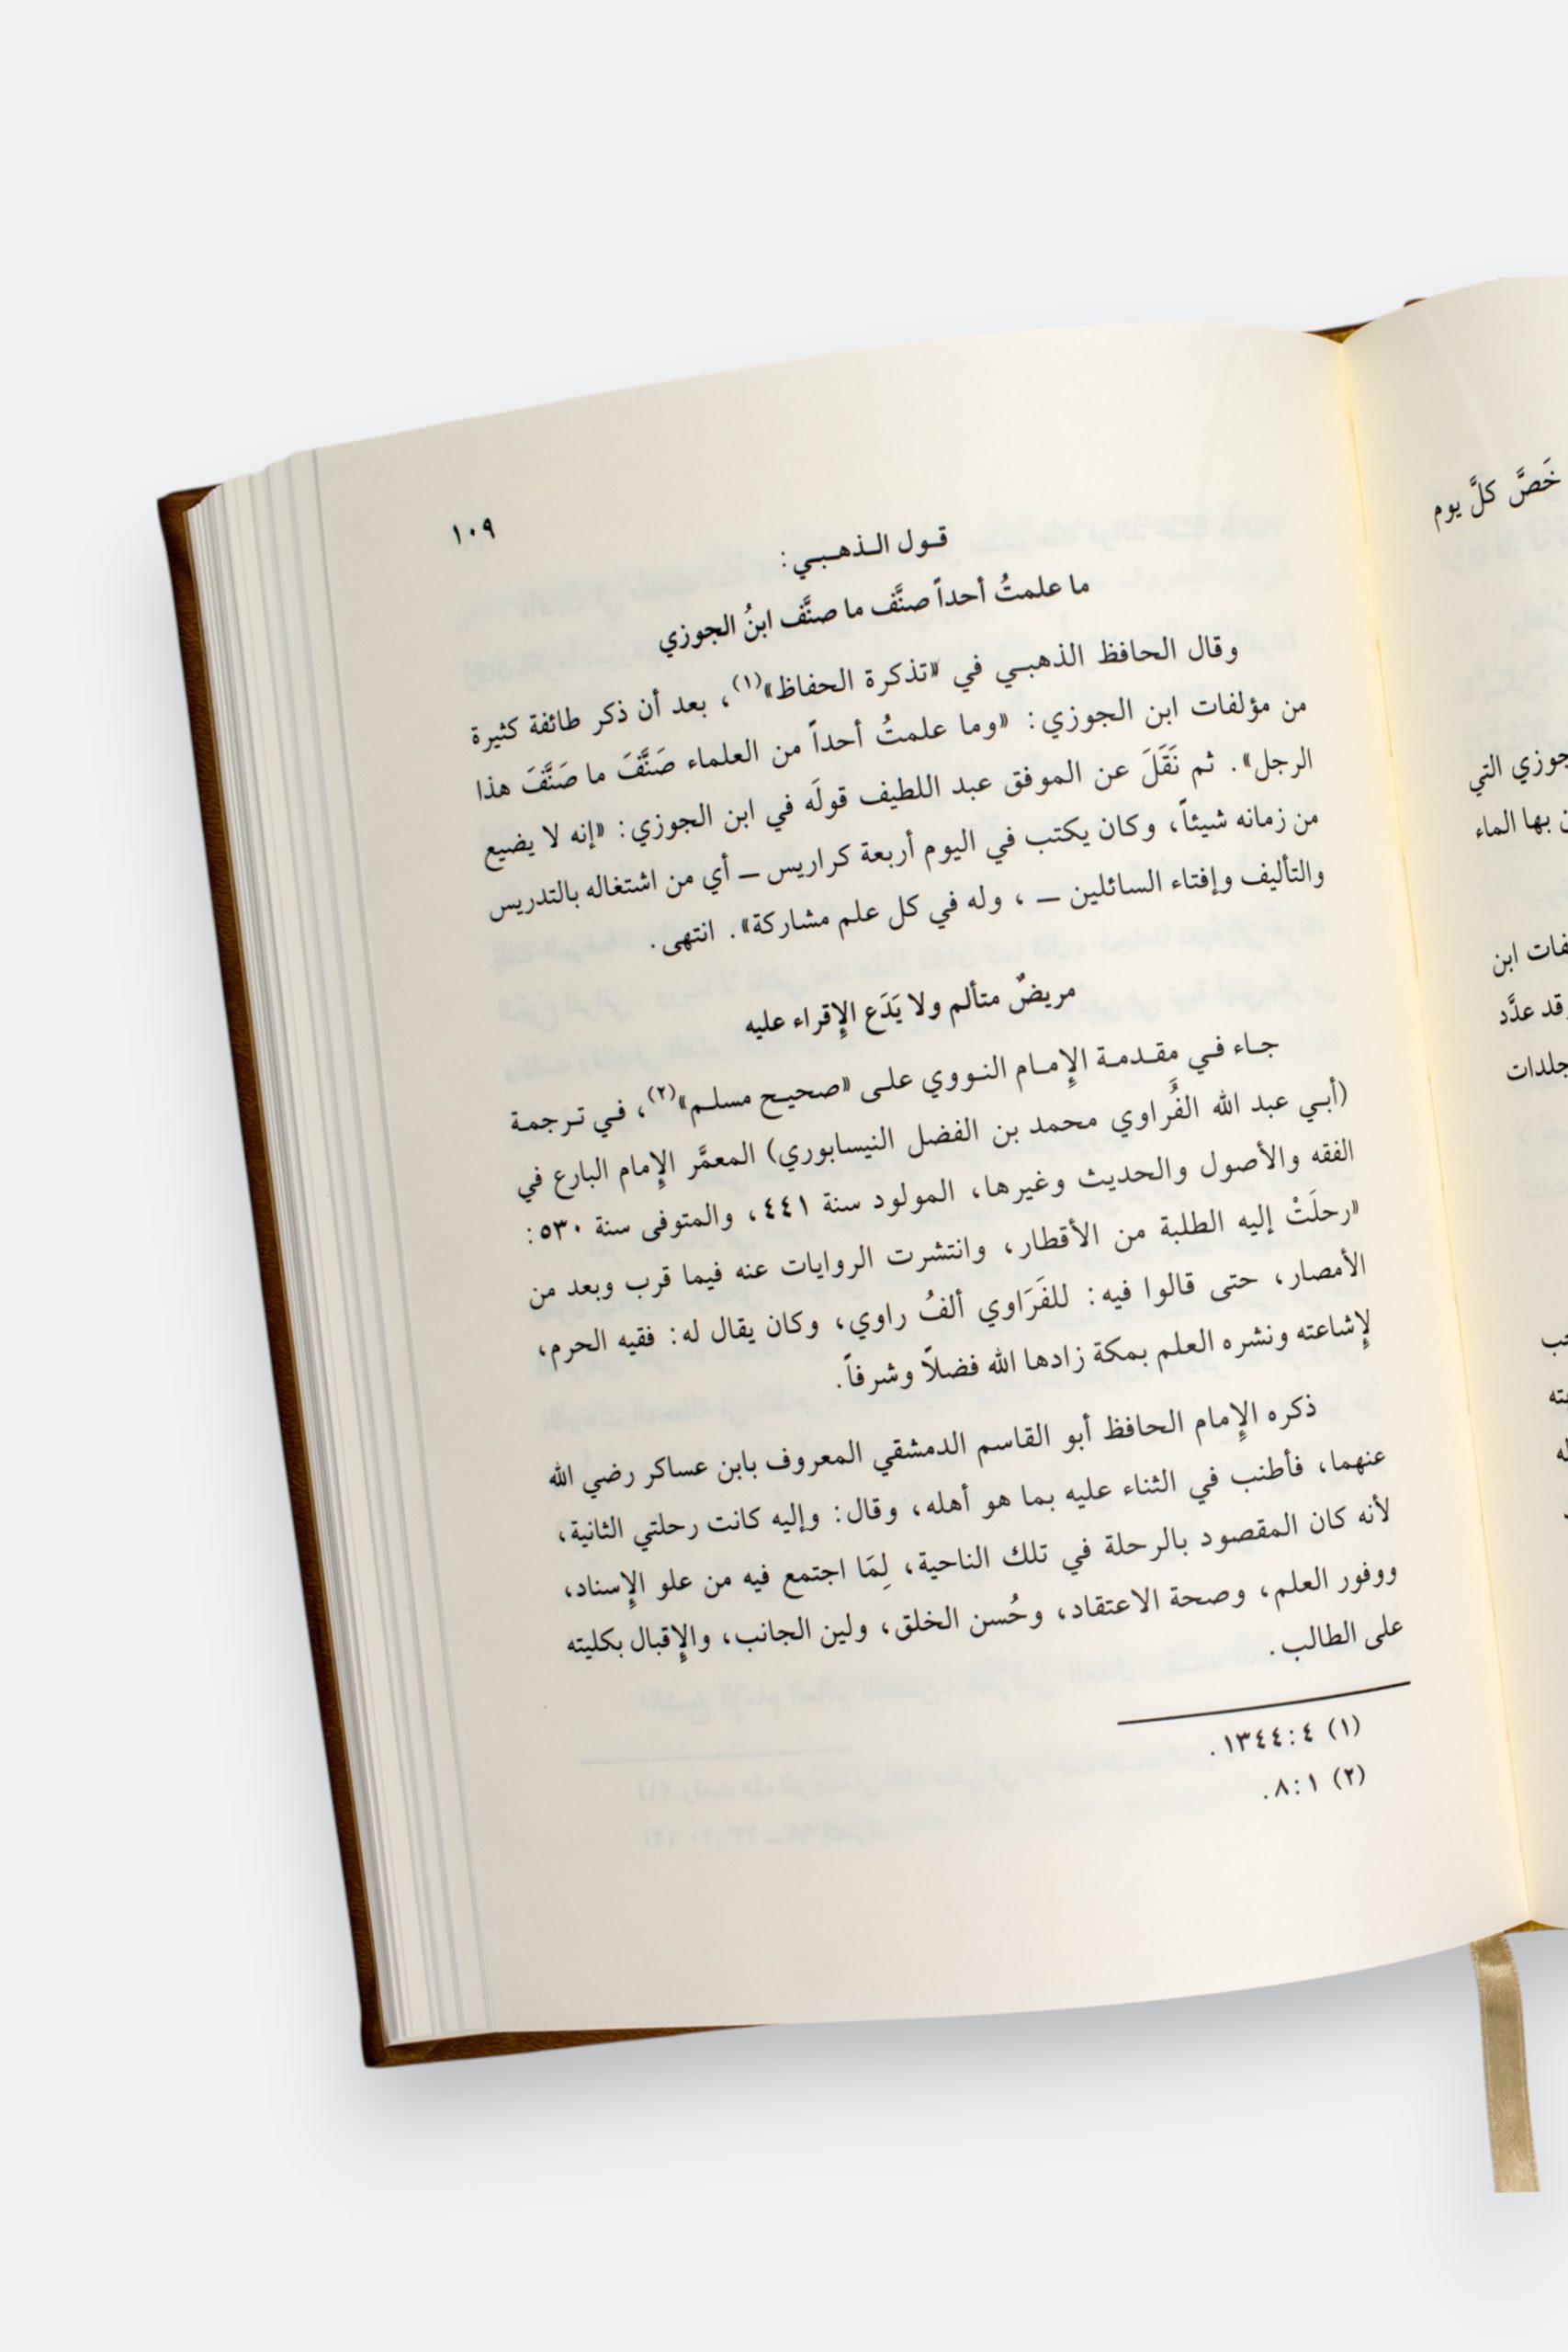 ١٠٩
قـول الـذهـبـي:
ما علمتُ أحداً صنَّف ما صنَّف ابنُ الجوزي
وقال الحافظ الذهبـي في «تذكرة الحفاظ»(١)، بعد أن ذكر طائفة كثيرة
من مؤلفات ابن الجوزي: «وما علمتُ أحداً من العلماء صَنَّفَ ما صَنَّفَ هذا
الرجل». ثم نَقَلَ عن الموفق عبد اللطيف قولَه في ابن الجوزي: «إنه لا يضيع
من زمانه شيئاً، وكان يكتب في اليوم أربعة كراريس ــ أي من اشتغاله بالتدريس
والتأليف وإفتاء السائلين ــ ، وله في كل علم مشاركة». انتهى.
مريضٌ متألم ولا يَدَع الإِقراء عليه
جـاء فـي مقـدمـة الإِمـام النـووي علـى «صحيـح مسلـم»(٢)، فـي تـرجمـة
(أبـي عبد الله الفُرَاوي محمد بن الفضل النيسابوري) المعمَّر الإِمام البارع في
الفقه والأصول والحديث وغيرها، المولود سنة ٤٤١، والمتوفى سنة ٥٣٠:
«رحلَتْ إليه الطلبة من الأقطار، وانتشرت الروايات عنه فيما قرب وبعد من
الأمصار، حتى قالوا فيه: للفَرَاوي ألفُ راوي، وكان يقال له: فقيه الحرم،
لإِشاعته ونشره العلم بمكة زادها الله فضلاً وشرفاً.
ذكره الإِمام الحافظ أبو القاسم الدمشقي المعروف بابن عساكر رضي الله
عنهما، فأطنب في الثناء عليه بما هو أهله، وقال: وإليه كانت رحلتي الثانية،
لأنه كان المقصود بالرحلة في تلك الناحية، لِمَا اجتمع فيه من علو الإِسناد،
ووفور العلم، وصحة الاعتقاد، وحُسن الخلق، ولين الجانب، والإِقبال بكليته
على الطالب.
(١) ٤:١٣٤٤.
(٢) ١:٨.
خَصَّ كلَّ يوم
جوزي التي
بها الماء
ابن
قد عدَّد